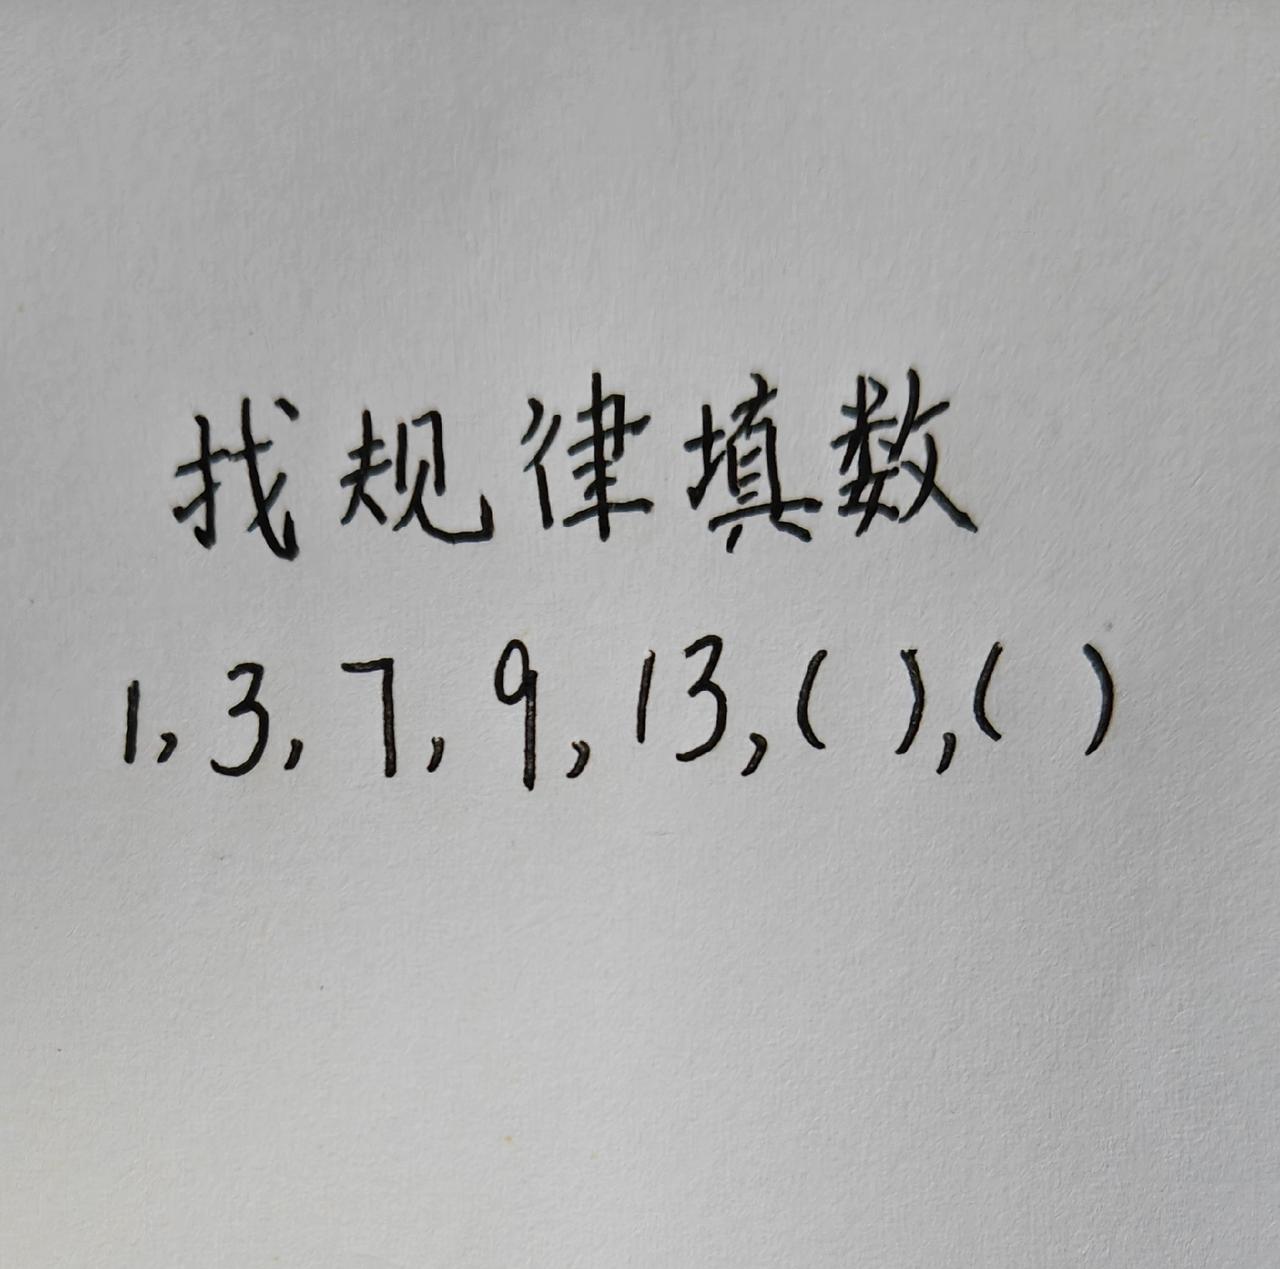 找规律填数
1,3,7,9,13,( ),( )